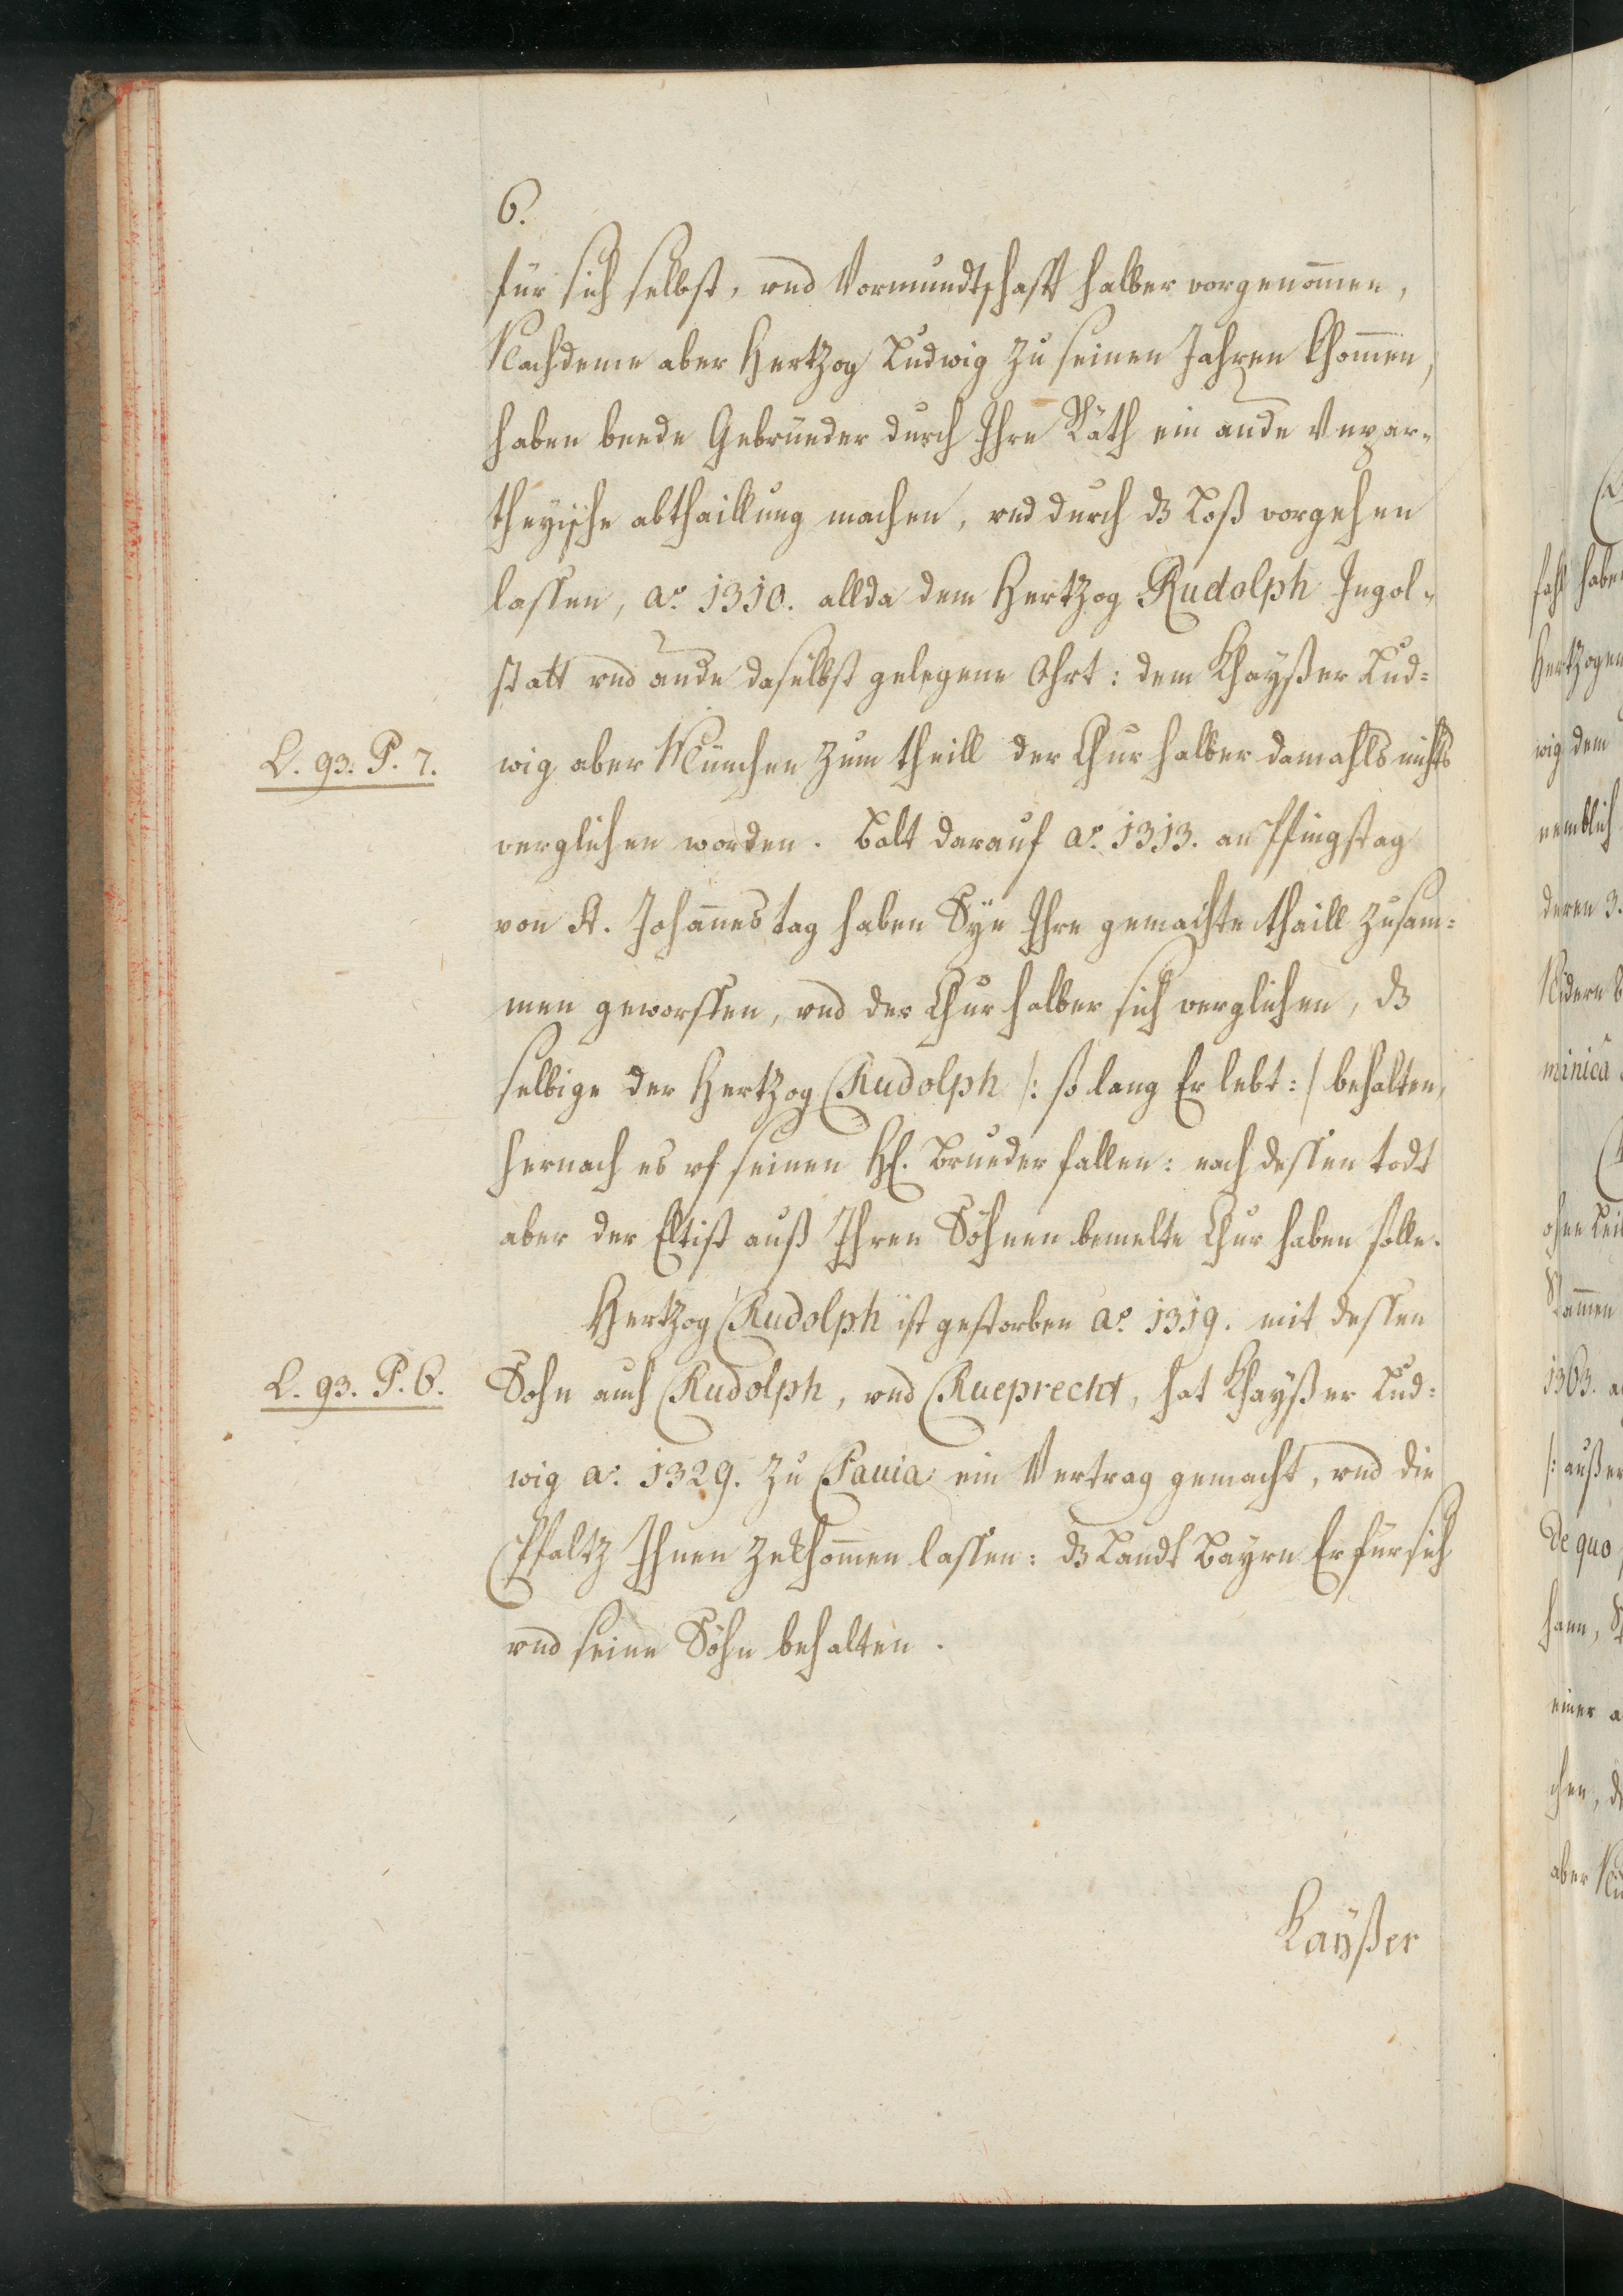 6.
für sich selbst, vnd Vormundtschafft halber vorgenom̄en,
Nachdeme aber Hertzog Ludwig zu seinen Jahren khom̄en,
haben beede Gebrüeder durch Ihre Räth ein ande Vnpar-
theyische abthaillung machen, vnd durch dz Loß vorgehen
lassen, aõ. 1310. allda dem Hertzog Rudolph Ingol-
statt vnd ande daselbst gelegene Ohrt: dem Khayßer Lud=
wig aber München zum theill der Chur halber damahls nichts
L. 93. P. 7.
verglichen worden. Balt darauf aõ. 1313. an Pfingstag
von St. Johan̄es tag haben Sye Ihre gemachte thaill zusam=
men geworffen, vnd der Chur halber sich verglichen, dz
selbige der Hertzog Rudolph /: so lang Er lebt :/ behalten,
hernach es vf seinen H. Brueder fallen: nach dessen todt
aber der Eltist auß Ihren Söhnen bemelte Chur haben solle.
Hertzog Rudolph ist gestorben aõ. 1319. mit dessen
L. 93. P. 6.
Sohn auch Rudolph, vnd Rueprecht, hat Khayßer Lud=
wig aõ. 1329. zu Pauia ein Vertrag gemacht, vnd die
Pfaltz Ihnen zekhom̄en lassen: dz Landt Bayrn Er für sich
vnd seine Söhn behalten.
Kayßer